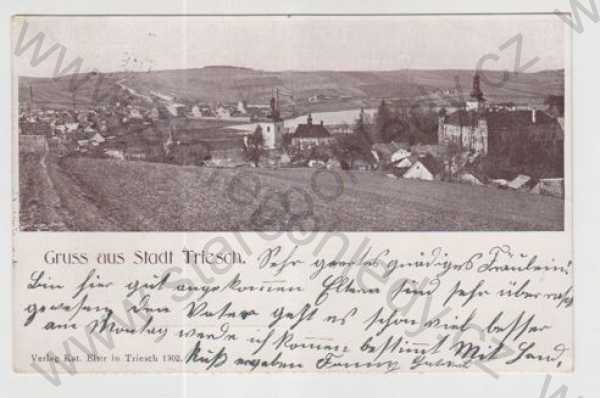 Gruss aus Stadt Triesch.
Sehr geertes gnädiges Fräulein!
Bin hier gut angekommen Eltern sind sehr überrasch
gewesen, dem Vater geht es schon viel besser
am Montag werde ich kommen bestimmt Mit Hand,
Verlag Kat. Elser in Triesch 1902.
Kuß ergeben Fanny
www.starepohledy.cz